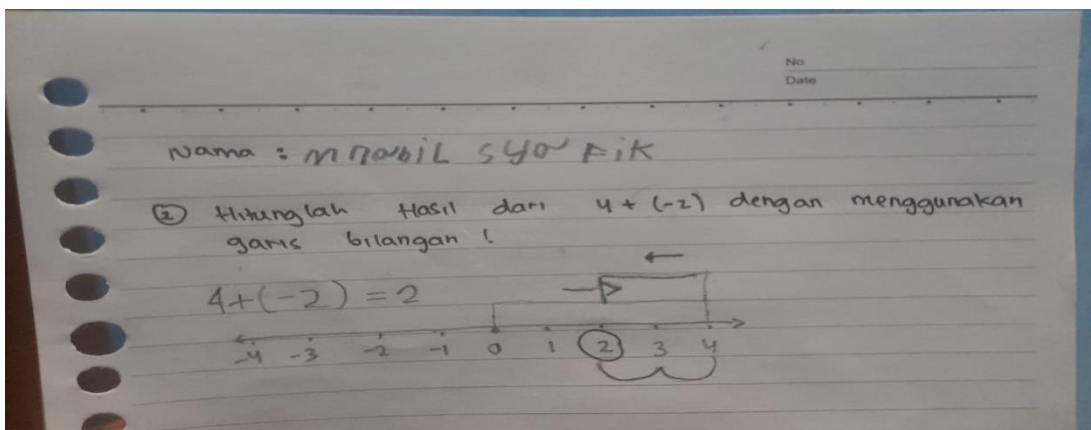 No
Date
Nama : M Nabil Syafik
② Hitunglah Hasil dari 4 + (-2) dengan menggunakan
garis bilangan !
4+(-2) = 2
-4 -3 -2 -1 0 1 2 3 4